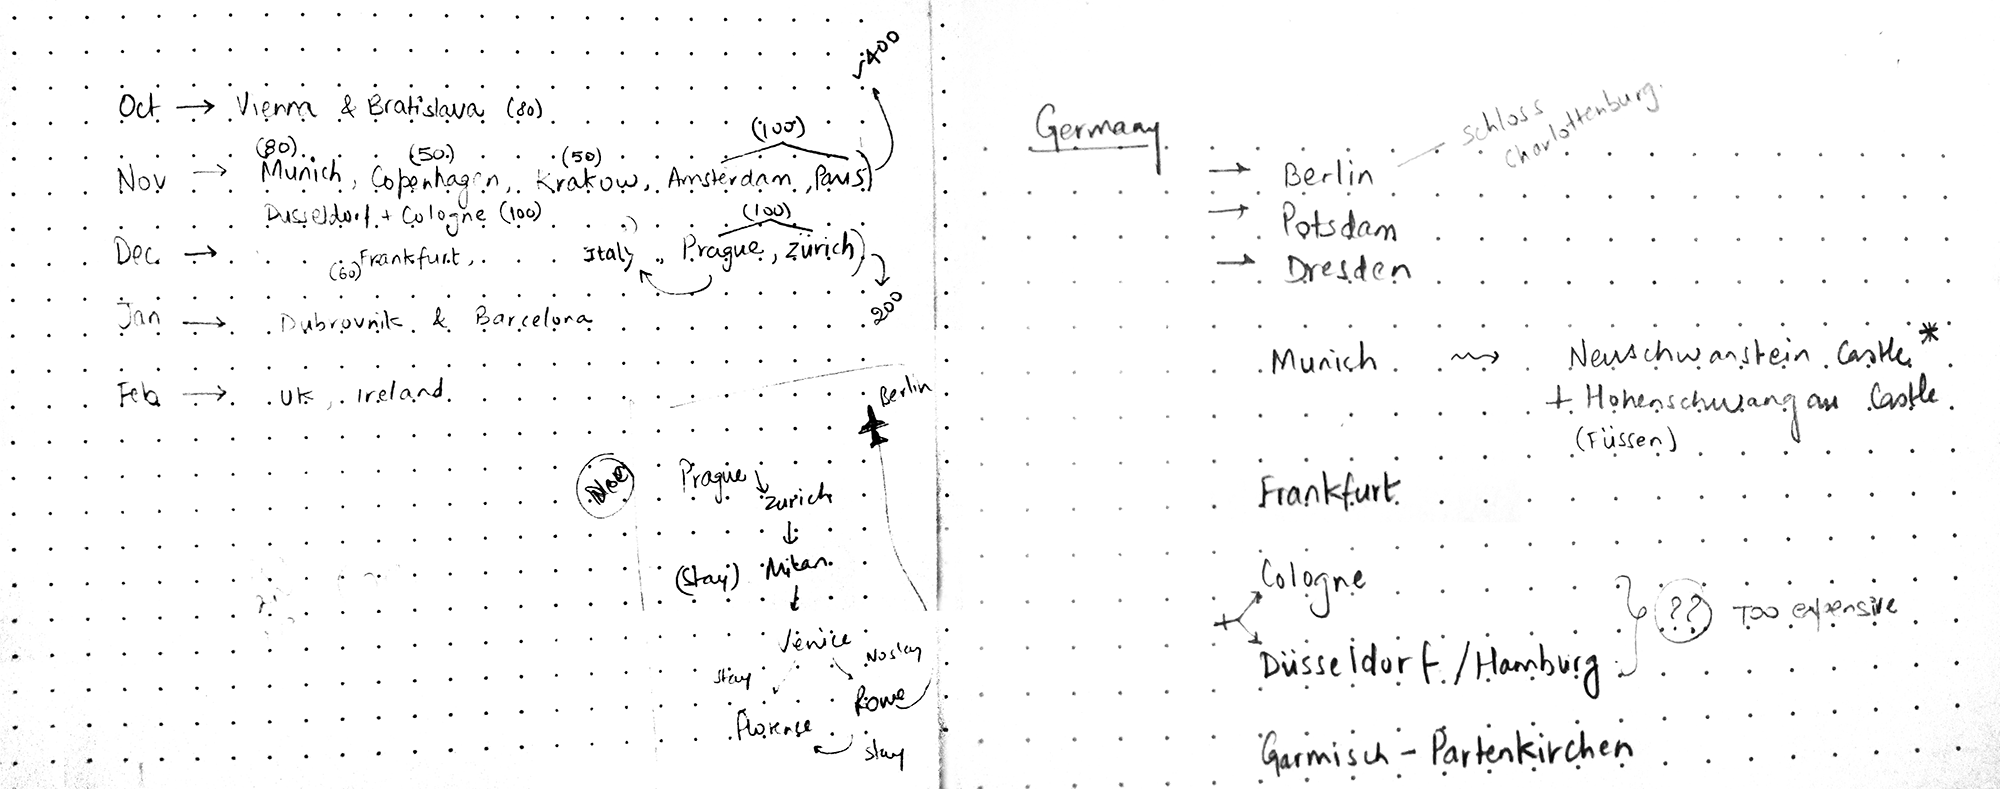 ~400
Oct → Vienna & Bratislava (80)
(80) (50) (50) (100)
Nov → Munich, Copenhagen, Krakow, Amsterdam, Paris)
Dusseldorf + Cologne (100)
(100)
Dec → Frankfurt, Italy, Prague, Zürich)
(60)
200
Jan → Dubrovnik & Barcelona
Feb → UK, Ireland
Berlin
Prague
Zurich
(Stay) Milan
Venice
No stay
stay
Rome
Florence
stay
Germany
schloss
Charlottenburg
→ Berlin
→ Potsdam
→ Dresden
Munich → Neuschwanstein Castle *
+ Hohenschwangau Castle
(Füssen)
Frankfurt
Cologne
?? Too expensive
+ Düsseldorf / Hamburg
Garmisch - Partenkirchen